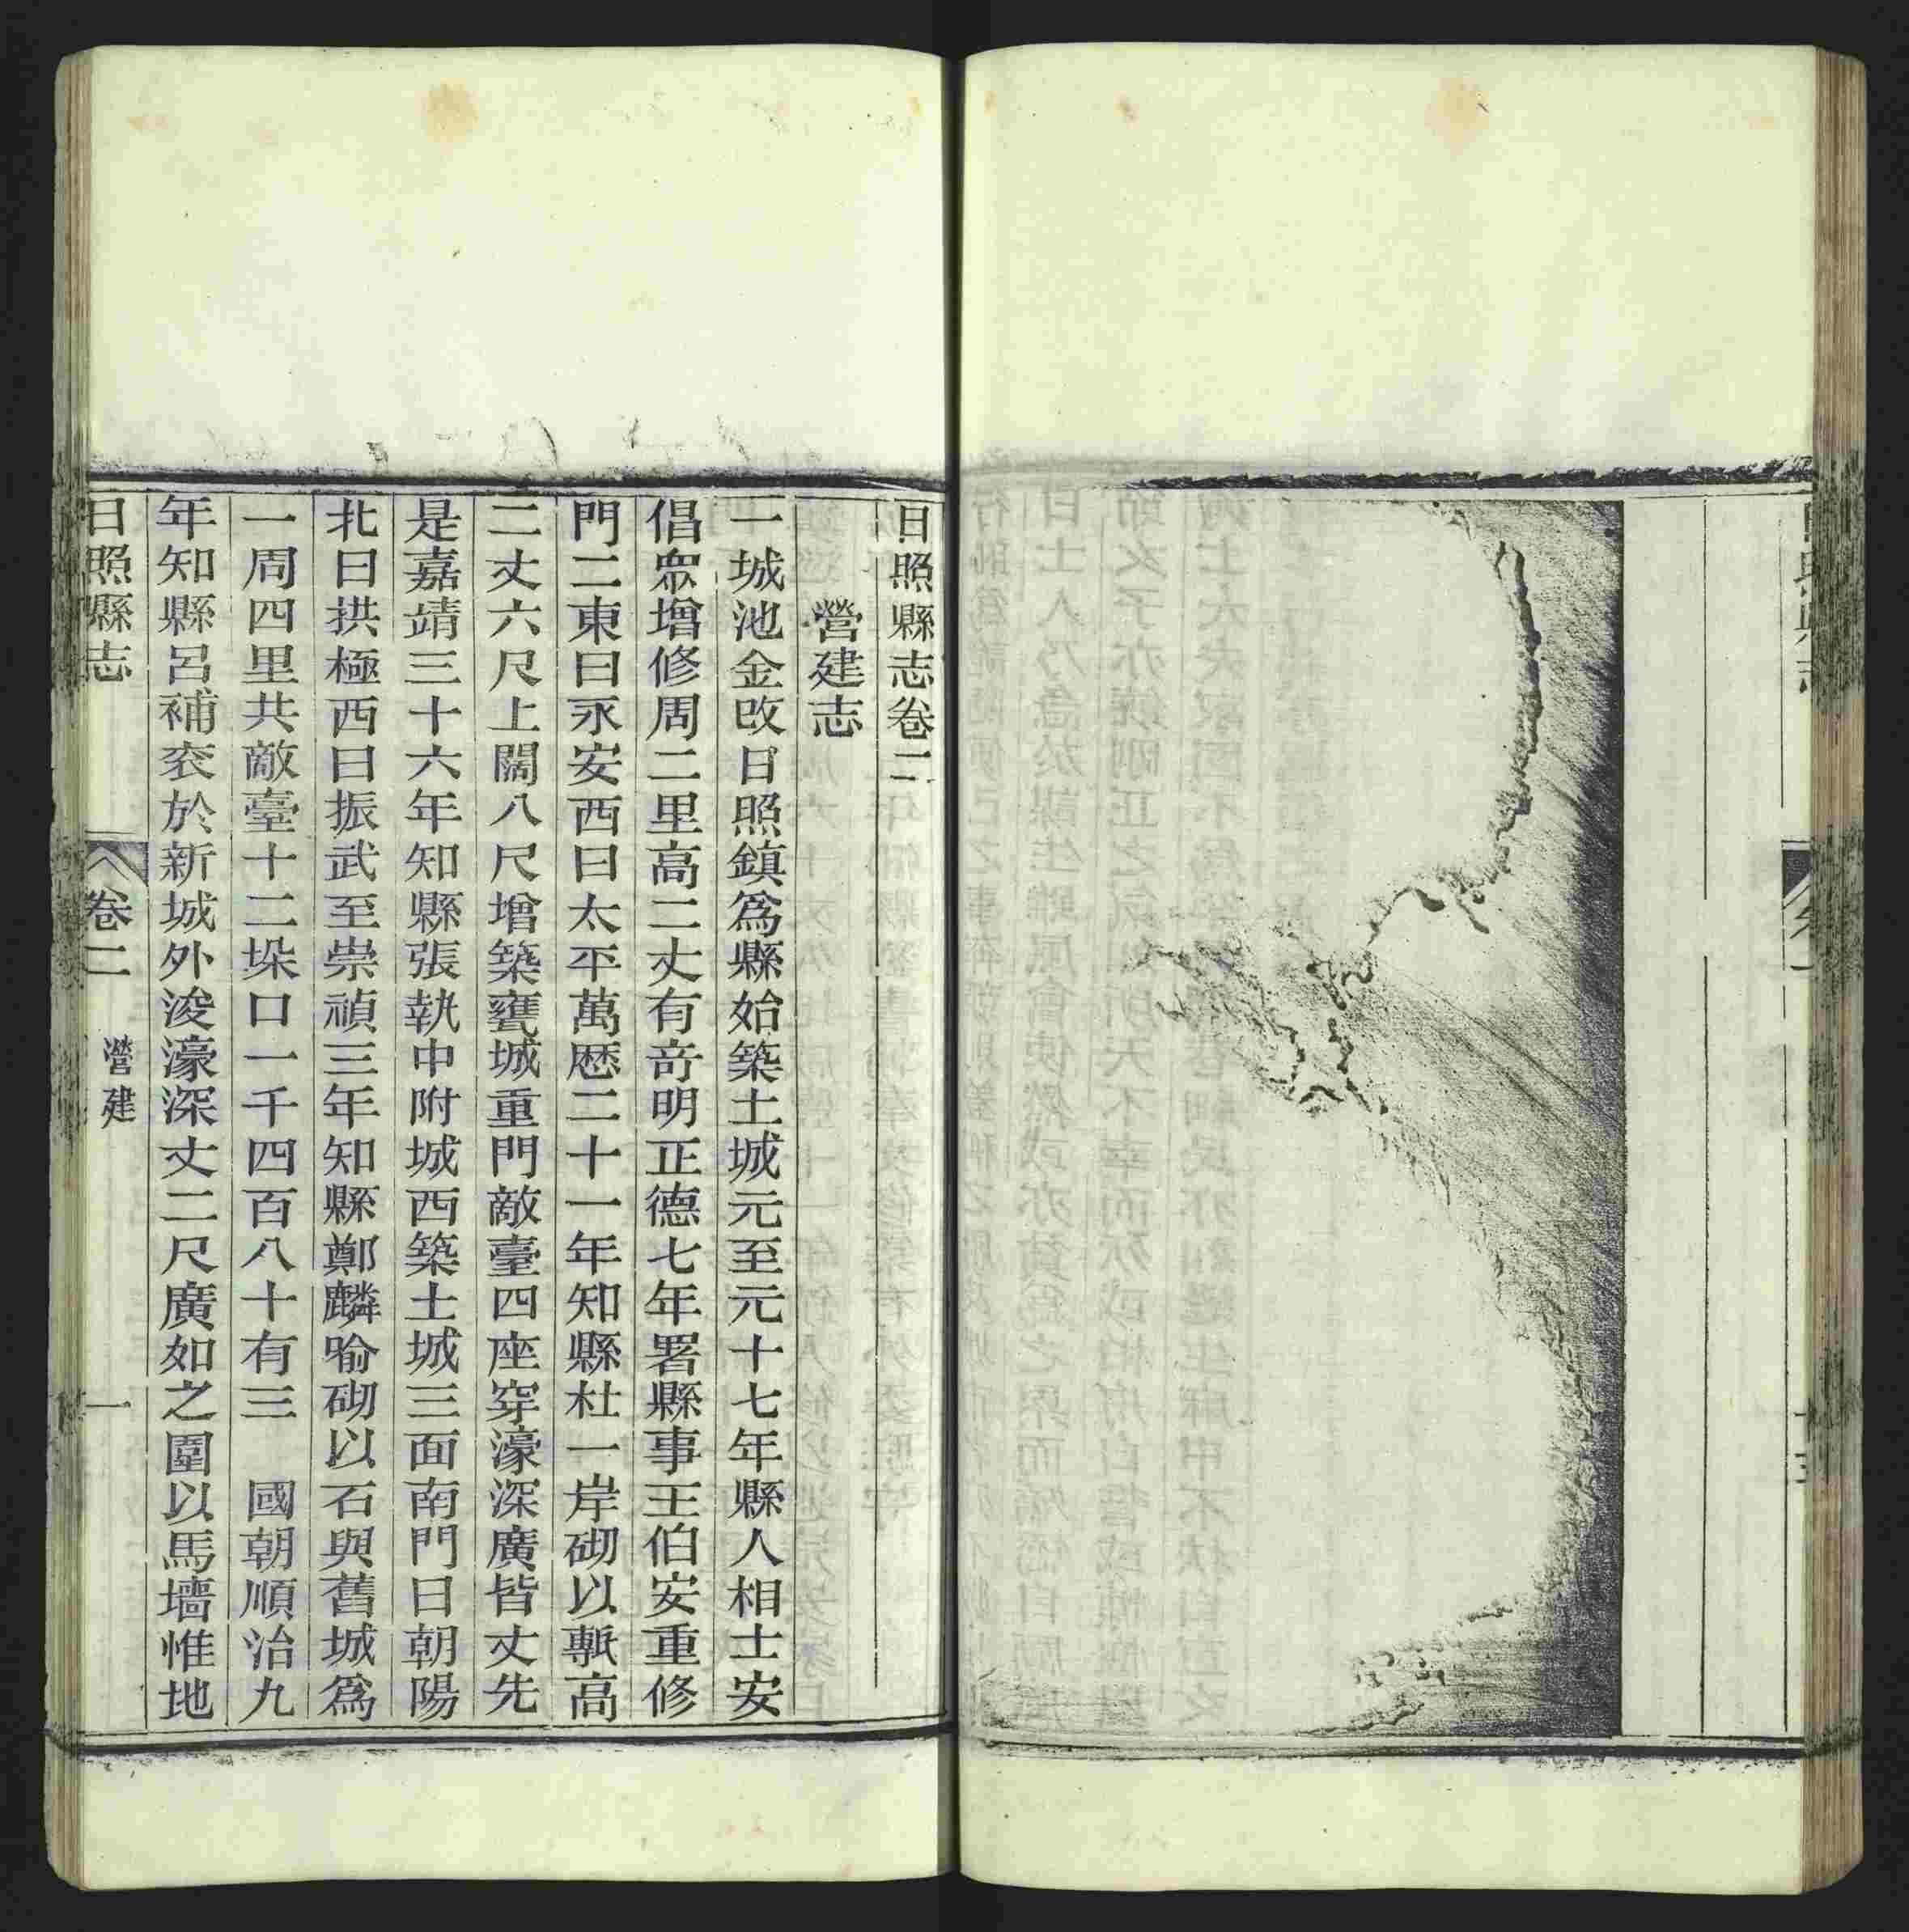 日照縣志卷二
營建志
一城池金改日照鎮爲縣始築土城元至元十七年縣人相士安
倡眾增修周二里高二丈有竒明正德七年署縣事王伯安重修
門二東曰永安西曰太平萬歷二十一年知縣杜一岸砌以甎高
二丈六尺上闊八尺增築甕城重門敵臺四座穿濠深廣皆丈先
是嘉靖三十六年知縣張執中附城西築土城三面南門曰朝陽
北曰拱極西曰振武至崇禎三年知縣鄭麟喻砌以石與舊城爲
一周四里共敵臺十二垛口一千四百八十有三　國朝順治九
年知縣呂補袞於新城外浚濠深丈二尺廣如之圍以馬墻惟地
日照縣志　卷二　營建　一